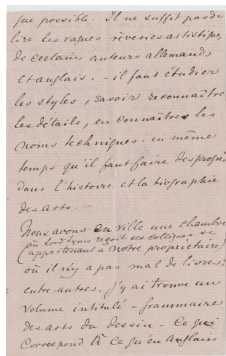 que possible. Il ne suffit pas de
lire les vagues rêveries artistiques
de certains auteurs allemands
et anglais. — il faut étudier
les styles, savoir reconnaître
les détails, en connaître les
noms techniques. en même
temps qu'il faut faire des progrès
dans l'histoire et la biographie
des arts —
Nous avons en ville une chambre
où reçoit ses collègues se
(appartenant à notre propriétaire)
où il n'y a pas mal de livres;
entre autres. J'y ai trouvé un
volume intitulé — Grammaire
des arts du dessin — Ce qui
correspond à ce qu'en anglais